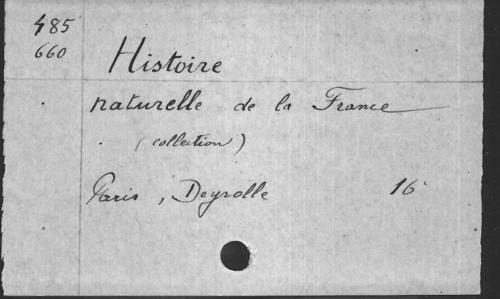 485
660
Histoire
naturelle de la France
(collection)
Paris, Deyrolle 16°